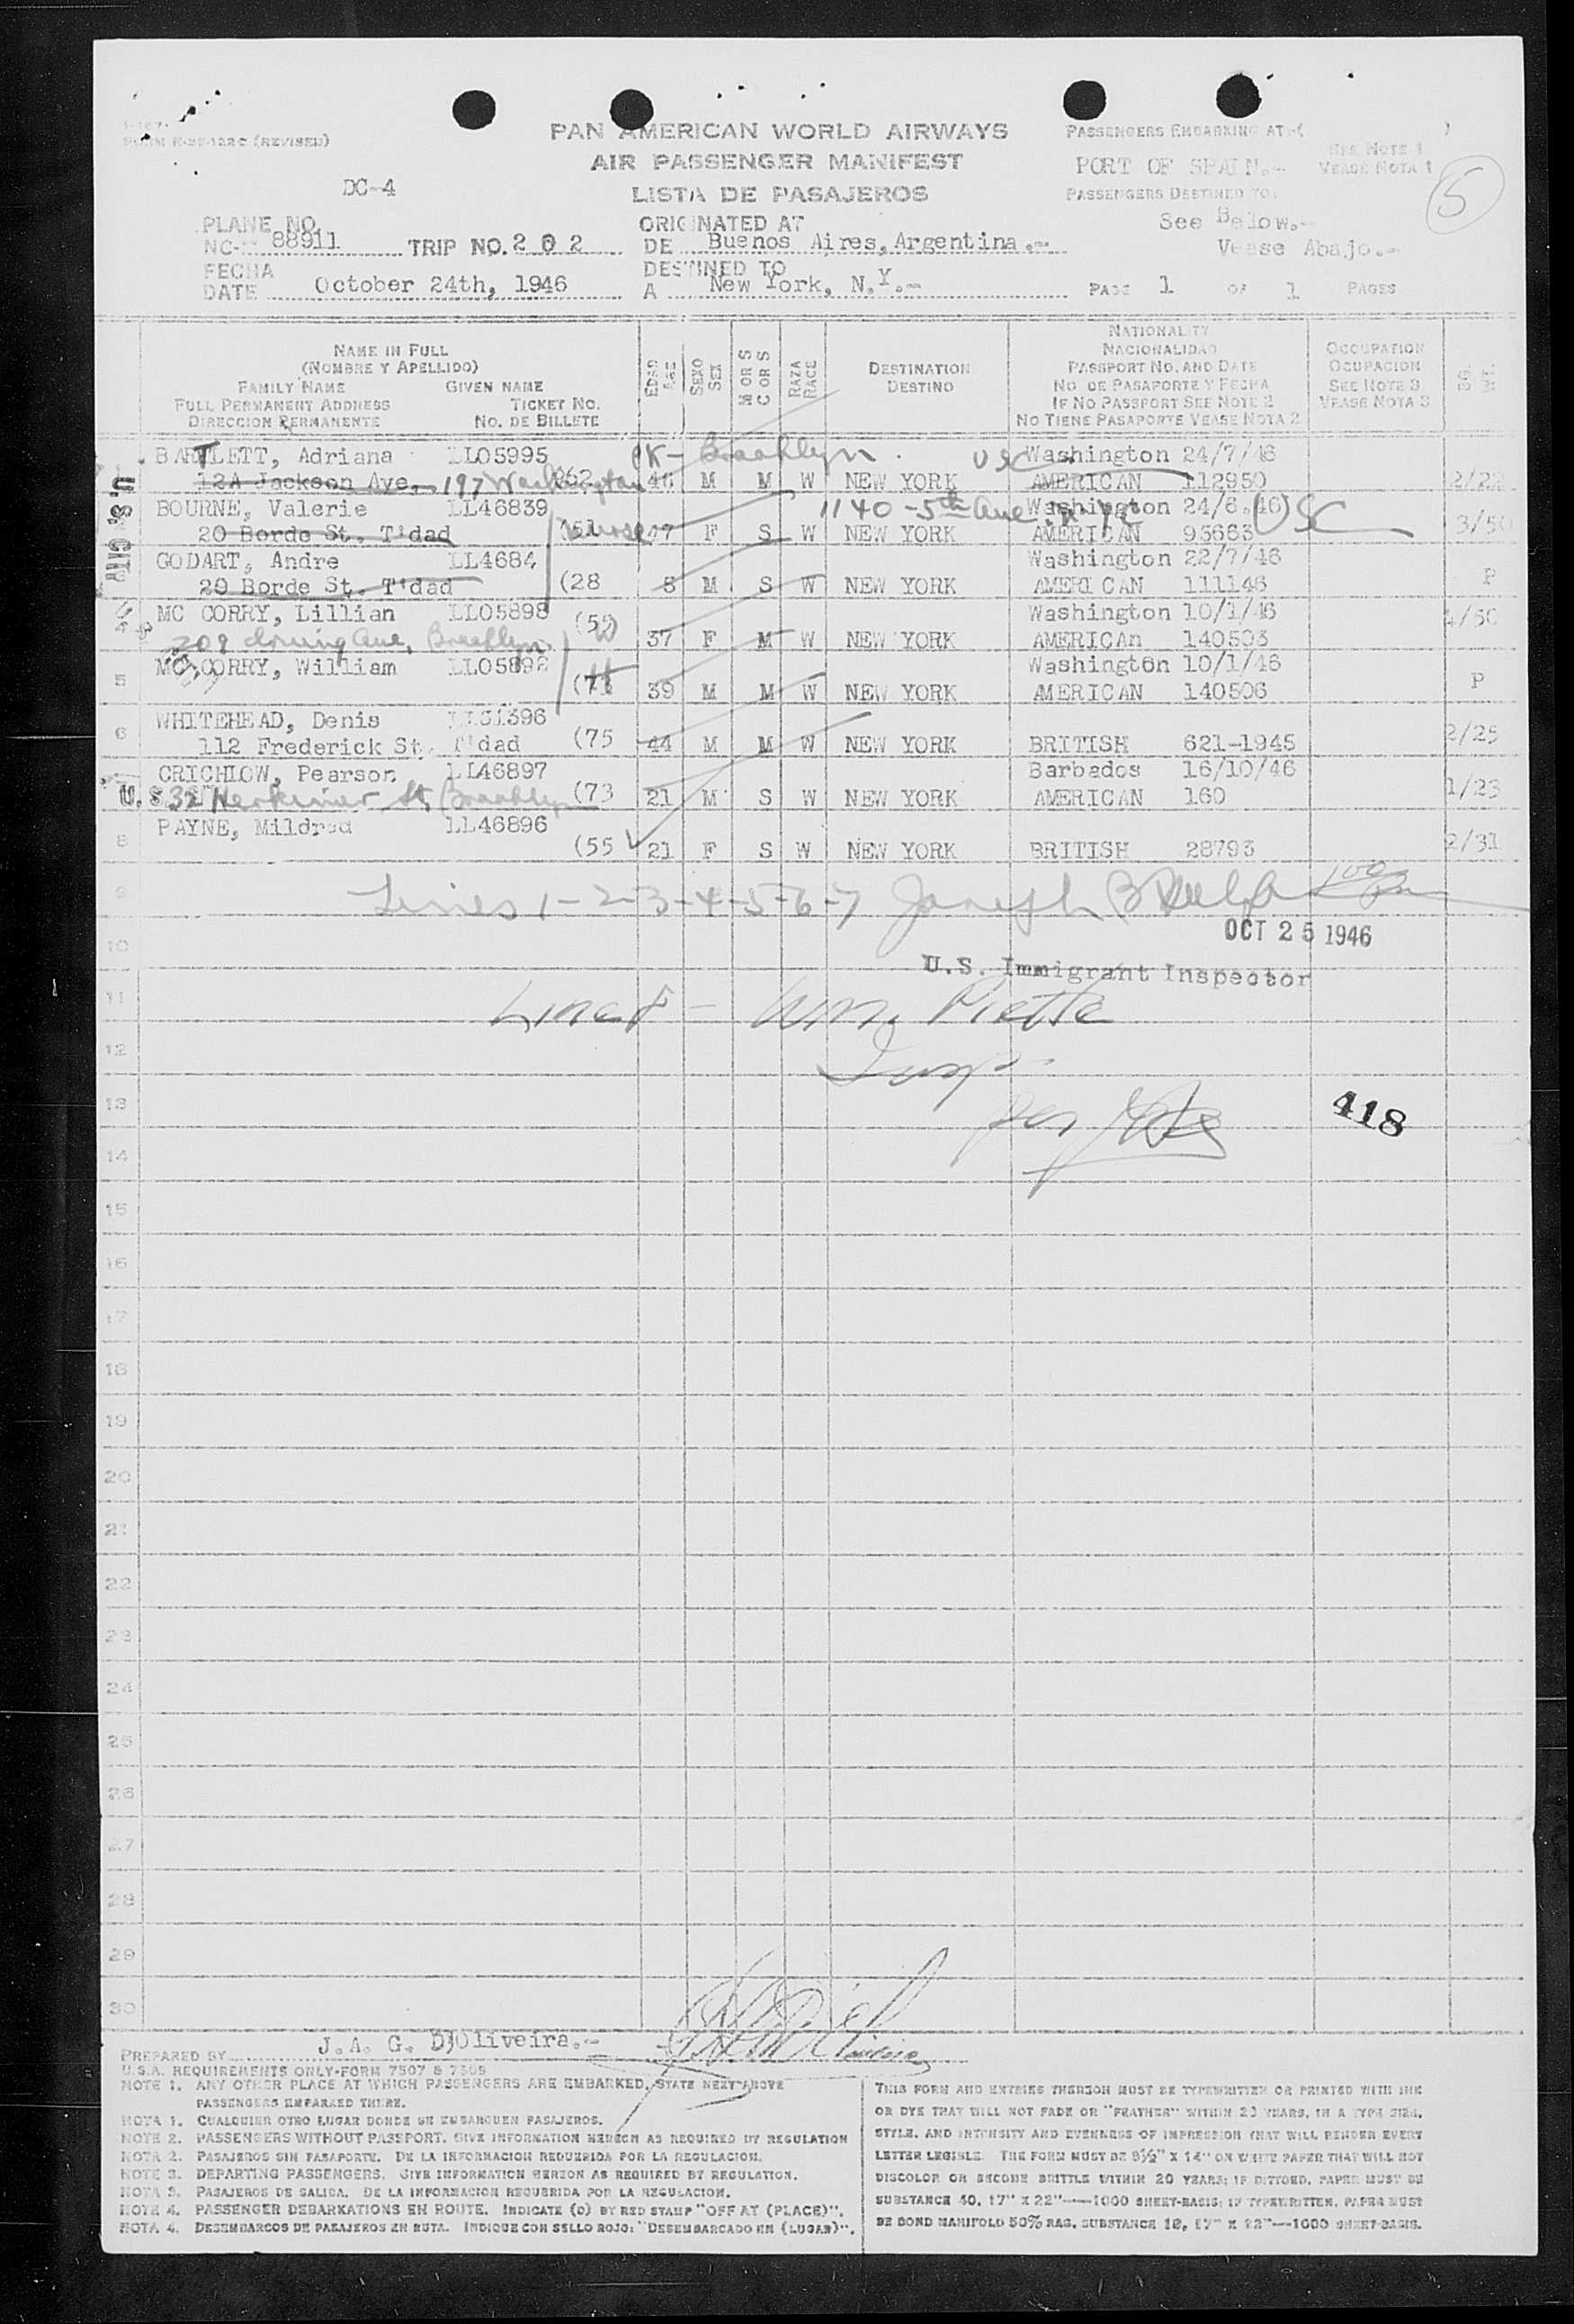 FORM R-25-122C (REVISED)
PAN AMERICAN WORLD AIRWAYS
AIR PASSENGER MANIFEST
LISTA DE PASAJEROS
PASSENGERS EMBARKING AT:(                    )
PORT OF SPAIN.-
SEE NOTE 1
VEASE NOTA 1
5
PASSENGERS DESTINED TO:
See Below.-
Vease Abajo.-
DC-4
PLANE NO.
NC- 88911 TRIP NO. 202
ORIGINATED AT
DE Buenos Aires, Argentina.--
FECHA
DATE October 24th, 1946
DESTINED TO
A New York, N.Y.--
PAGE 1 OF 1 PAGES
NAME IN FULL
(NOMBRE Y APELLIDO)
FAMILY NAME GIVEN NAME
FULL PERMANENT ADDRESS TICKET NO.
DIRECCION PERMANENTE NO. DE BILLETE
EDAD AGE
SEXO SEX
M OR S C OR S
RAZA RACE
DESTINATION
DESTINO
NATIONALITY
NACIONALIDAD
PASSPORT NO. AND DATE
NO. DE PASAPORTE Y FECHA
IF NO PASSPORT SEE NOTE 2
NO TIENE PASAPORTE VEASE NOTA 2
OCCUPATION
OCUPACION
SEE NOTE 3
VEASE NOTA 3
BARTLETT, Adriana LL05995 PK- Brooklyn. USC Washington 24/7/46
12A Jackson Ave. 197 Washington 46 M M W NEW YORK AMERICAN 112950 2/22
BOURNE, Valerie LL46839 1140 - 5th Ave. N.Y.C Washington 24/6.46 USC
20 Borde St. T'dad F S W NEW YORK AMERICAN 93663 3/50
GODART, Andre LL4684 Washington 22/7/46
20 Borde St. T'dad (28 8 M S W NEW YORK AMERICAN 111146 P
U.S. CITY
MC CORRY, Lillian LL05898 Washington 10/1/46
209 Ave, Brooklyn 37 F M W NEW YORK AMERICAn 140503 4/50
MC CORRY, William LL05892 Washington 10/1/46
5 39 M M W NEW YORK AMERICAN 140506 P
WHITEHEAD, Denis LL31396
6 112 Frederick St. T'dad (75 44 M M W NEW YORK BRITISH 621-1945 2/25
CRICHLOW, Pearson LL46897 Barbados 16/10/46
U.S. 32 Herkimer St, Brooklyn (73 21 M S W NEW YORK AMERICAN 160 1/23
PAYNE, Mildred LL46896
8 (55 21 F S W NEW YORK BRITISH 28793 2/31
9 Lines 1-2-3-4-5-6-7 Joseph B
OCT 25 1946
10
U.S. Immigrant Inspector
11 Line 8 - Wm. Piette
12 Insp
13 per
418
14
15
16
17
18
19
20
21
22
23
24
25
26
27
28
29
30
PREPARED BY J.A. G. D'Oliveira.--
U.S.A. REQUIREMENTS ONLY-FORM 7507 & 7509
NOTE 1. ANY OTHER PLACE AT WHICH PASSENGERS ARE EMBARKED, STATE NEXT ABOVE
PASSENGERS EMBARKED THERE.
NOTA 1. CUALQUIER OTRO LUGAR DONDE SE EMBARQUEN PASAJEROS.
NOTE 2. PASSENGERS WITHOUT PASSPORT. GIVE INFORMATION HEREON AS REQUIRED BY REGULATION
NOTA 2. PASAJEROS SIN PASAPORTE. DE LA INFORMACION REQUERIDA POR LA REGULACION.
NOTE 3. DEPARTING PASSENGERS. GIVE INFORMATION HEREON AS REQUIRED BY REGULATION.
NOTA 3. PASAJEROS DE SALIDA. DE LA INFORMACION REQUERIDA POR LA REGULACION.
NOTE 4. PASSENGER DEBARKATIONS EN ROUTE. INDICATE (D) BY RED STAMP "OFF AT (PLACE)".
NOTA 4. DESEMBARCOS DE PASAJEROS EN RUTA. INDIQUE CON SELLO ROJO: "DESEMBARCADO EN (LUGAR)".
THIS FORM AND ENTRIES THEREON MUST BE TYPEWRITTEN OR PRINTED WITH INK
OR DYE THAT WILL NOT FADE OR "FEATHER" WITHIN 20 YEARS, IN A TYPE SIZE,
STYLE, AND INTENSITY AND EVENNESS OF IMPRESSION THAT WILL RENDER EVERY
LETTER LEGIBLE. THE FORM MUST BE 8½" X 14" ON WHITE PAPER THAT WILL NOT
DISCOLOR OR BECOME BRITTLE WITHIN 20 YEARS; IF DITTOED, PAPER MUST BE
SUBSTANCE 40, 17" X 22"—1000 SHEET-BASIS; IF TYPEWRITTEN, PAPER MUST
BE BOND MANIFOLD 50% RAG, SUBSTANCE 18, 17" X 22"—1000 SHEET-BASIS.